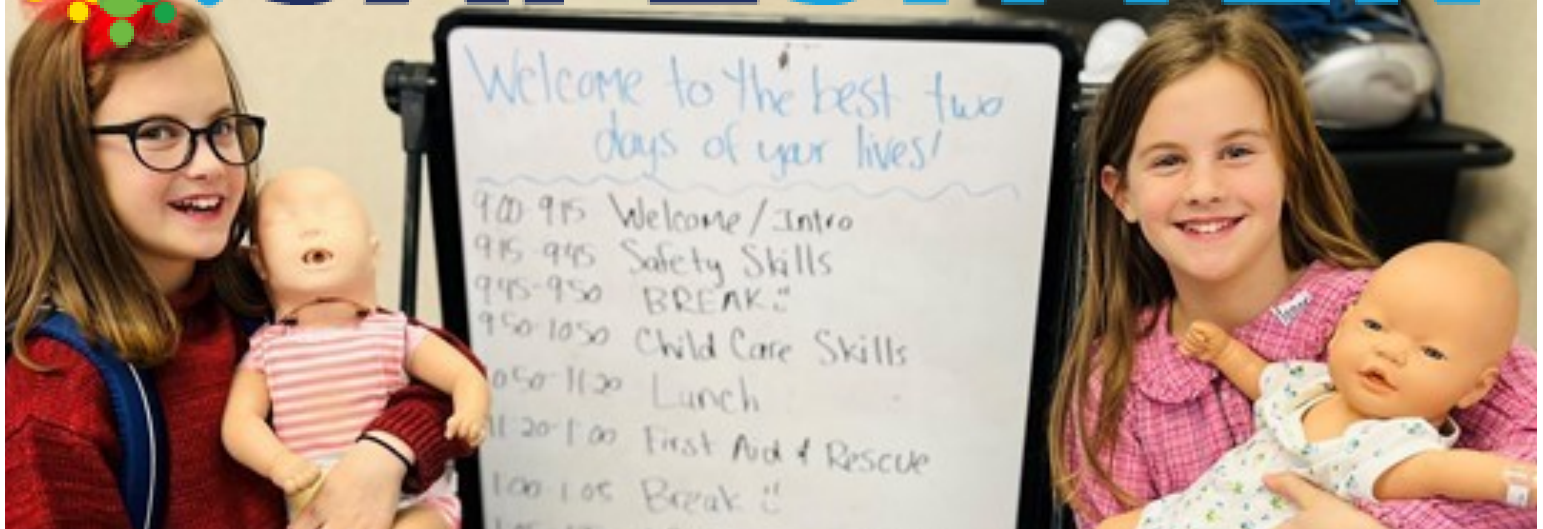 Welcome to the best two
days of your lives!
9:00-9:15 Welcome/Intro
9:15-9:45 Safety Skills
9:45-9:50 BREAK :)
9:50-10:50 Child Care Skills
10:50-11:20 Lunch
11:20-1:00 First Aid & Rescue
1:00-1:05 Break :)